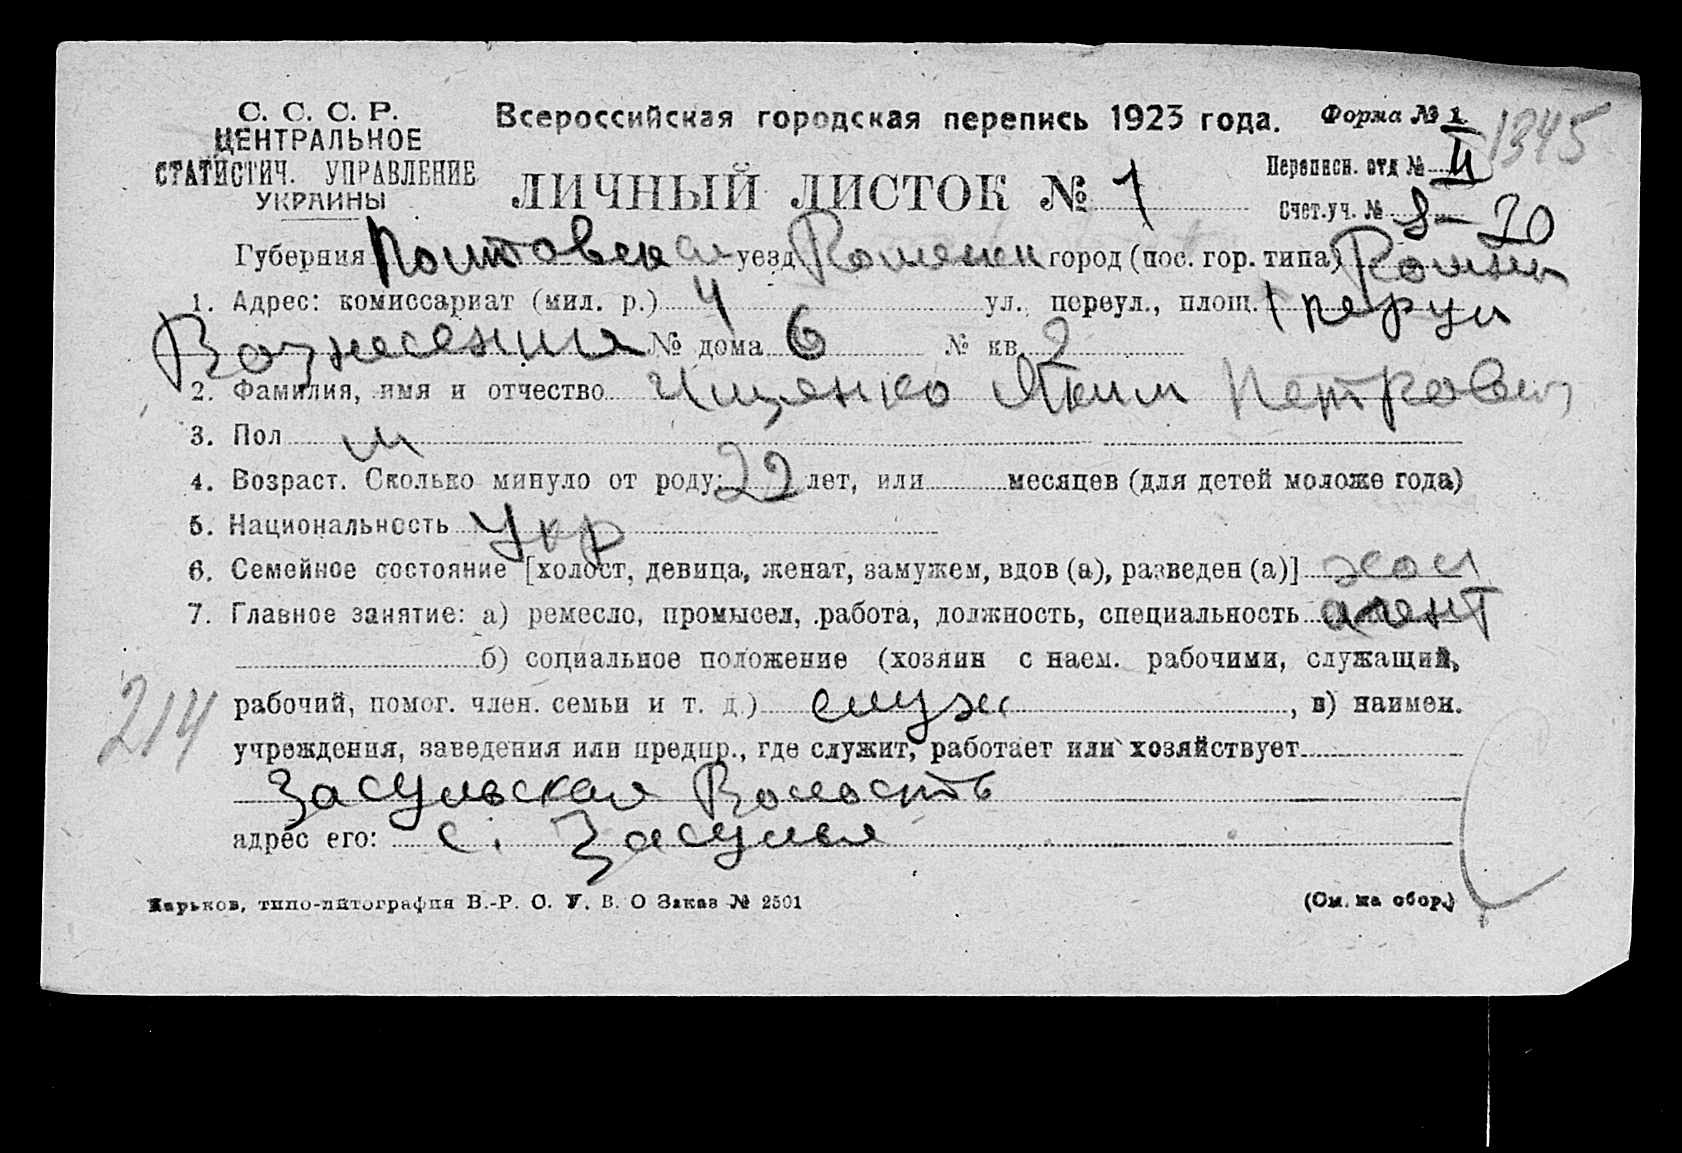 С. С. С. Р.
ЦЕНТРАЛЬНОЕ
СТАТИСТИЧ. УПРАВЛЕНИЕ
УКРАИНЫ
Всероссийская городская перепись 1923 года.
Форма № 1
1345
ЛИЧНЫЙ ЛИСТОК № 1
Переписн. отд № II
Счет.уч. № 8-20
Губерния Полтавская уезд Роменск город (пос. гор. типа) Ромны
1. Адрес: комиссариат (мил. р.) 4 ул., переул., площ. 1 переул
Вознесенния № дома 6 № кв. 2
2. Фамилия, имя и отчество Ищенко Яким Петрович
3. Пол м
4. Возраст. Сколько минуло от роду: 22 лет, или месяцев (для детей моложе года)
5. Национальность Укр
6. Семейное состояние [холост, девица, женат, замужем, вдов (а), разведен (а)] хол
7. Главное занятие: а) ремесло, промысел, работа, должность, специальность агент
б) социальное положение (хозяин с наем. рабочими, служащий,
214
рабочий, помог. член. семьи и т. д.) служ , в) наимен.
учреждения, заведения или предпр., где служит, работает или хозяйствует
Засульская Волость
адрес его: с. Засулья
Харьков, типо-литография В.-Р. С. У. В. О Заказ № 2501
(См. на обор.)